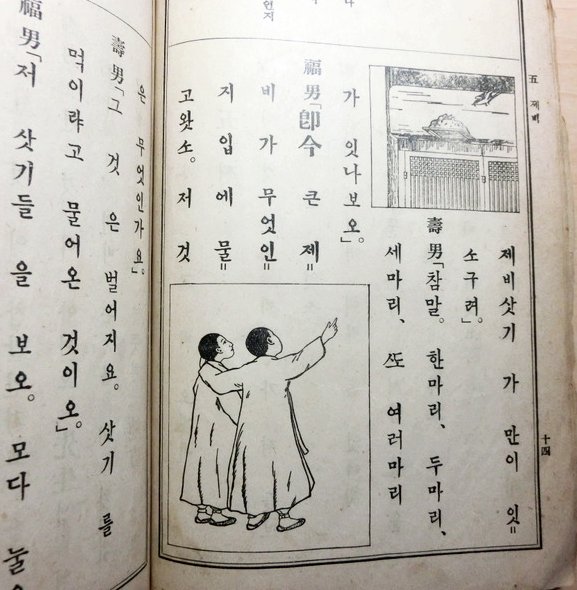 五 제비
十四
제비삿기 가 만이 잇=
소구려」。
壽男「참말。 한마리、 두마리、
세마리、 ᄯᅩ 여러마리
가 잇나보오」。
福男「卽今 큰 제=
비 가 무엇인=
지 입에 물=
고왓소。 저 것
은 무엇인가요」。
壽男「그 것 은 벌어지요。 삿기 를
먹이랴고 물어온 것이오」。
福男「저 삿기들 을 보오。 모다